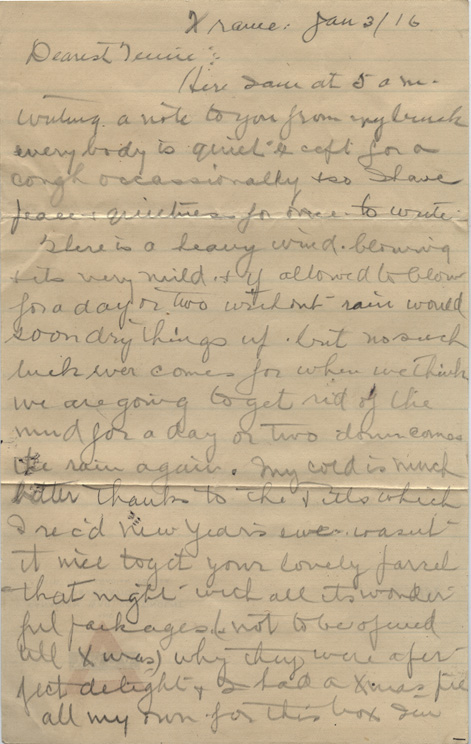 France. Jan 3/16
Dearest
Here I am at 5 a m.
writing a note to you from my bunk
everybody is quiet except for a
cough occassionally & so I have
peace & quietness for once to write.
There is a heavy wind blowing
& its very mild & if allowed to blow
for a day or two without rain would
soon dry things up. but no such
luck ever comes for when we think
we are going to get rid of the
mud for a day or two down comes
the rain again. My cold is much
better thanks to the Pills which
I rec'd New Year's eve. wasn't
it nice to get your lovely parcel
that night with all its wonder
ful packages (not to be opened
till Xmas) why they were a per
fect delight & I had a Xmas
all my own for this box